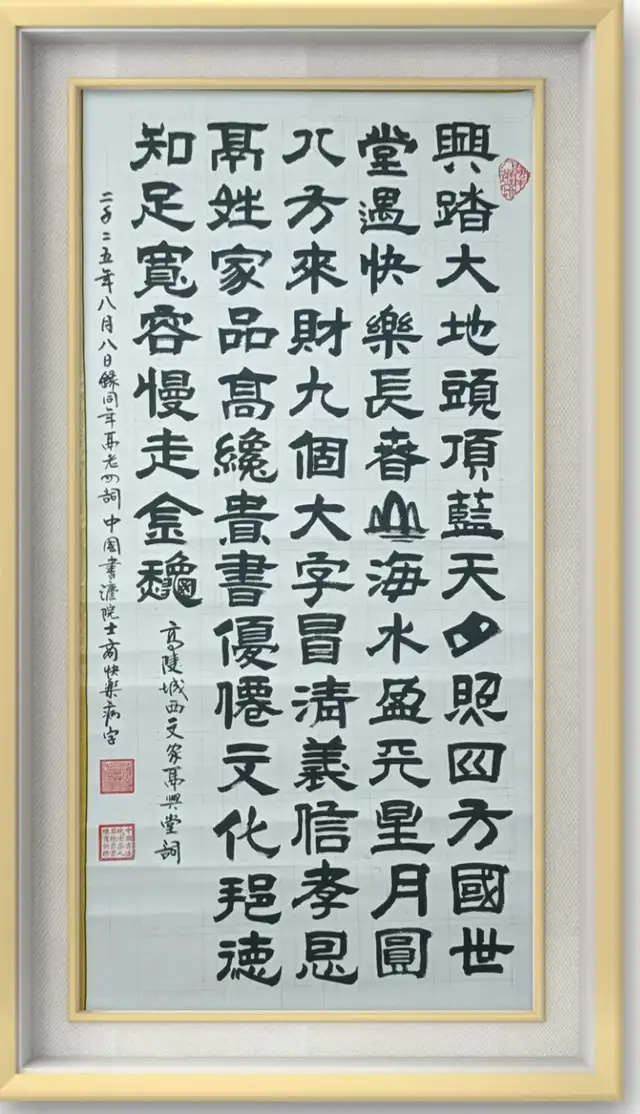 興踏大地頭頂藍天夕照四方國世
堂遇快樂長春山海水盈天星月圓
八方來財九個大字冒清義信孝恩
鬲姓家品高纔貴書優僊文化德
知足寬容慢走金
高陵城西文家鬲興堂詞
二千二五年八月八日錄同年鬲老四詞 中國書灋院士商快樂病字